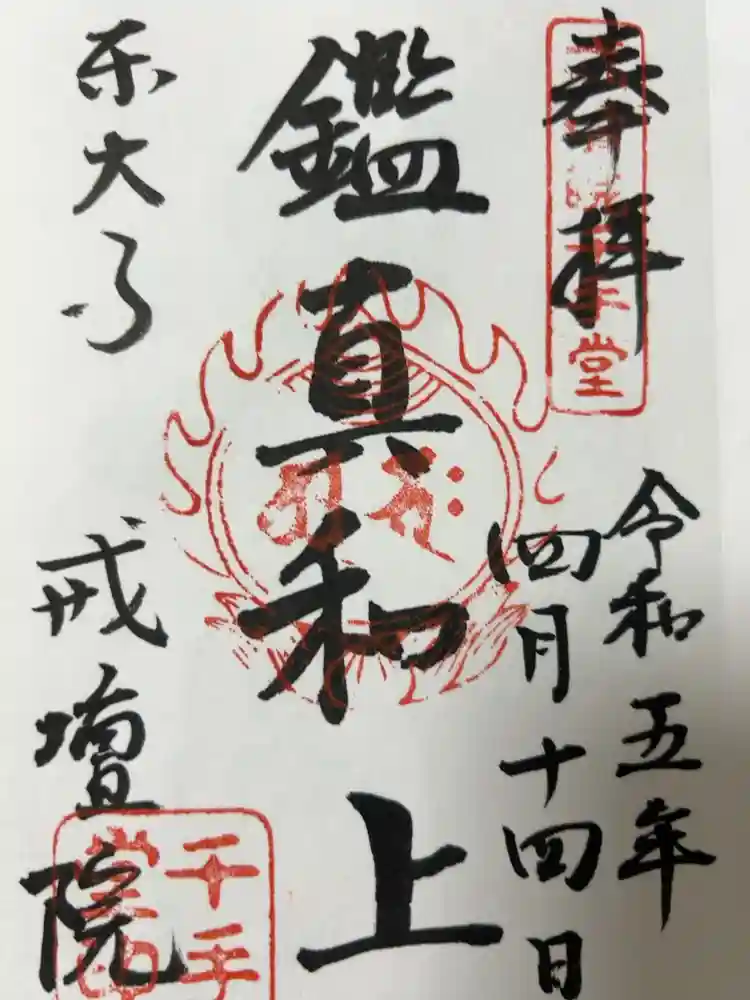 奉拝
令和五年
四月十四日
鑑真和上
東大寺
戒壇院
千手堂